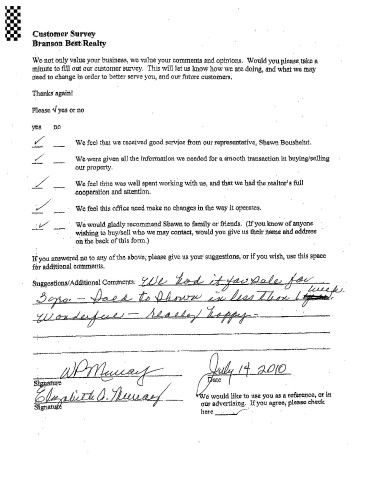 Customer Survey
Branson Best Realty
We not only value your business, we value your comments and opinions. Would you please take a
minute to fill out our customer survey. This will let us know how we are doing, and what we may
need to change in order to better serve you, and our future customers.
Thanks again!
Please √ yes or no
yes no
We feel that we received good service from our representative, Shawn Bousheint.
We were given all the information we needed for a smooth transaction in buying/selling
our property.
We feel time was well spent working with us, and that we had the realtor's full
cooperation and attention.
We feel this office need make no changes in the way it operates.
We would gladly recommend Shawn to family or friends. (If you know of anyone
wishing to buy/sell who we may contact, would you give us their name and address
on the back of this form.)
If you answered no to any of the above, please give us your suggestions, or if you wish, use this space
for additional comments.
Suggestions/Additional Comments: We had it for sale for
3 yrs – Said to Shawn in less than 1 week
Wonderful – Really happy –
WP Murray July 14 2010
Signature Date
Elizabeth A. Murray
Signature
We would like to use you as a reference, or in
our advertising. If you agree, please check
here